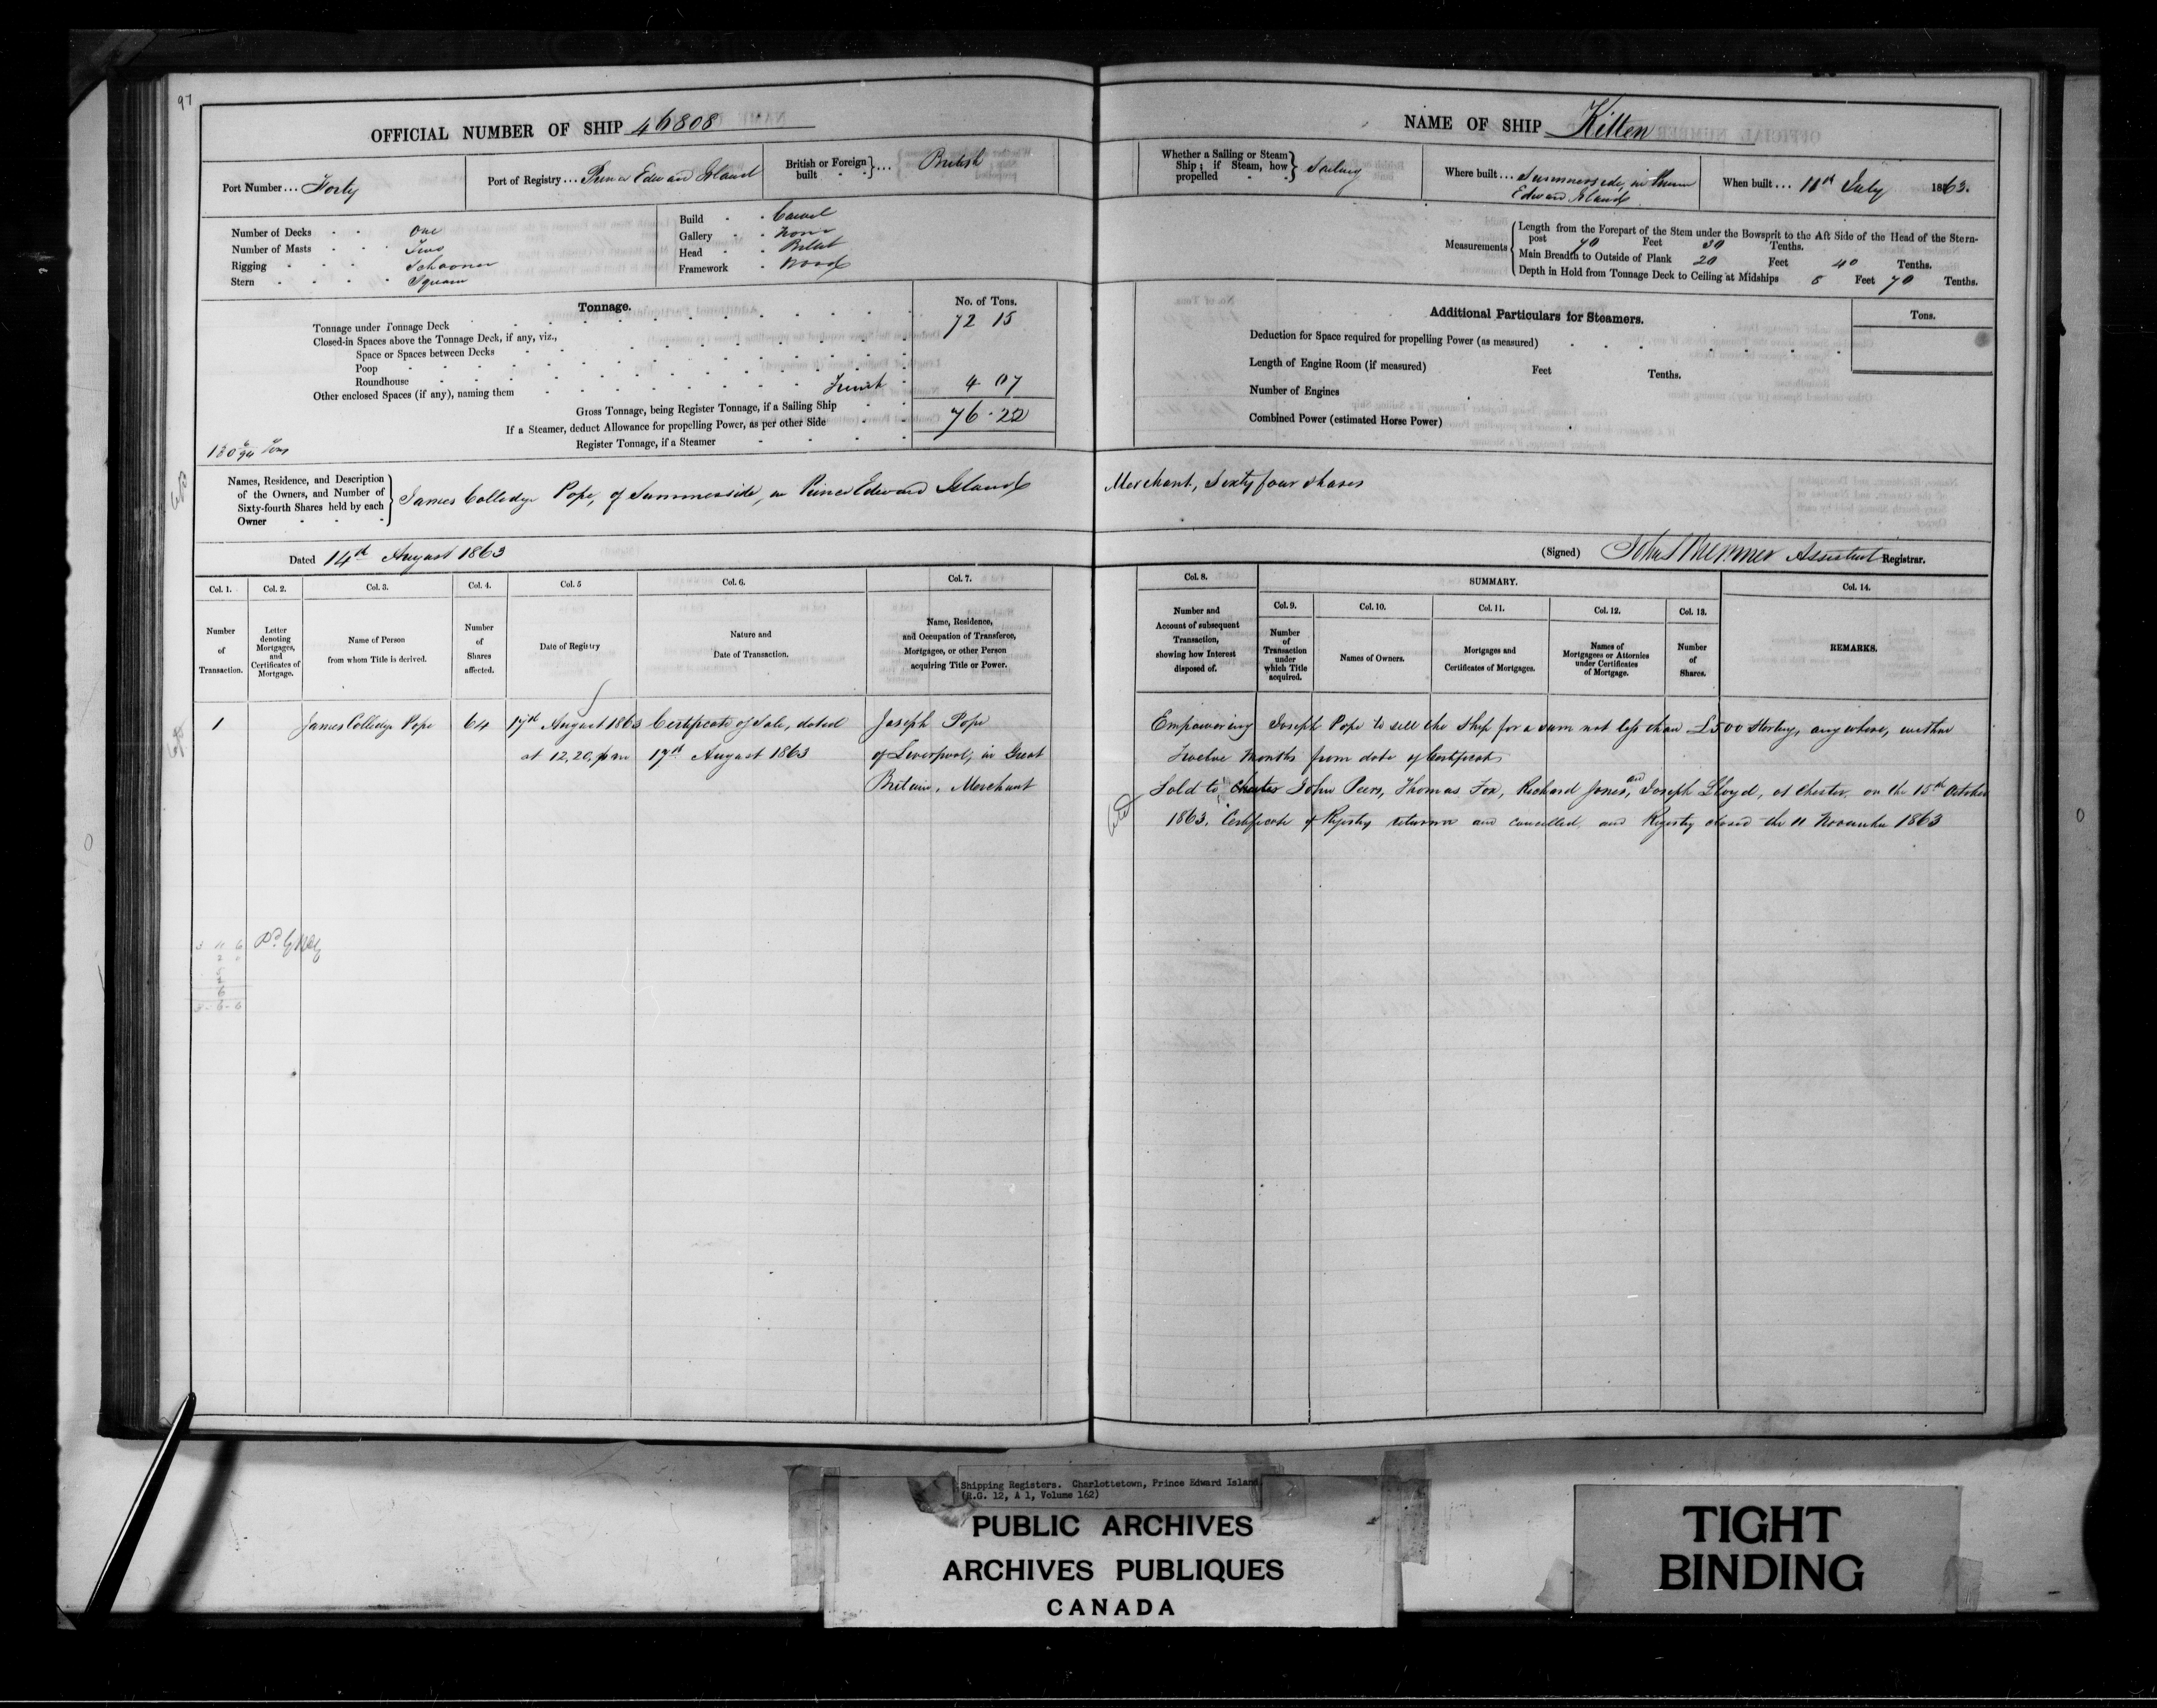 97
OFFICIAL NUMBER OF SHIP 46808
Port Number ... Forty
Port of Registry ... Prince Edward Island
British or Foreign built } ... British
Number of Decks One
Number of Masts Two
Rigging Schooner
Stern Square
Build Carvel
Gallery None
Head Billet
Framework Wood
Tonnage.
No. of Tons.
Tonnage under Tonnage Deck 72 15
Closed-in Spaces above the Tonnage Deck, if any, viz.,
Space or Spaces between Decks
Poop
Roundhouse
Other enclosed Spaces (if any), naming them 4 07
Gross Tonnage, being Register Tonnage, if a Sailing Ship 76.22
If a Steamer, deduct Allowance for propelling Power, as per other Side
Register Tonnage, if a Steamer
Names, Residence, and Description
of the Owners, and Number of
Sixty-fourth Shares held by each
Owner
James Colledge Pope, of Summerside, in Prince Edward Island
Dated 14th August 1863
Col. 1. Col. 2. Col. 3. Col. 4. Col. 5 Col. 6. Col. 7.
Number of Transaction.
Letter denoting Mortgages, and Certificates of Mortgage.
Name of Person from whom Title is derived.
Number of Shares affected.
Date of Registry
Nature and Date of Transaction.
Name, Residence, and Occupation of Transferee, Mortgagee, or other Person acquiring Title or Power.
1 James Colledge Pope 64 17th August 1863 Certificate of Sale, dated Joseph Pope
at 12,20, pm 17th August 1863 of Liverpool, in Great
Britain, Merchant
NAME OF SHIP Kitten
Whether a Sailing or Steam Ship; if Steam, how propelled } Sailing
Where built ... Summerside, in Prince
Edward Island
When built .... 11th July 1863.
Measurements
Length from the Forepart of the Stem under the Bowsprit to the Aft Side of the Head of the Stern-
post 70 Feet 30 Tenths.
Main Breadth to Outside of Plank 20 Feet 40 Tenths.
Depth in Hold from Tonnage Deck to Ceiling at Midships 8 Feet 70 Tenths.
Additional Particulars for Steamers.
Tons.
Deduction for Space required for propelling Power (as measured)
Length of Engine Room (if measured) Feet Tenths.
Number of Engines
Combined Power (estimated Horse Power)
Merchant, Sixty four shares
(Signed) Assistant Registrar.
Col. 8. SUMMARY. Col. 14.
Col. 9. Col. 10. Col. 11. Col. 12. Col. 13.
Number and Account of subsequent Transaction, showing how Interest disposed of.
Number of Transaction under which Title acquired.
Names of Owners.
Mortgages and Certificates of Mortgages.
Names of Mortgagees or Attornies under Certificates of Mortgage.
Number of Shares.
REMARKS.
Empowering Joseph Pope to sell the Ship for a sum not less than £500 Sterling, anywhere, within
Twelve Months from date of Certificate
Sold to Chester John Peers, Thomas Fox, Richard Jones, and Joseph Lloyd, at Chester, on the 15th October
1863. Certificate of Registry returned and cancelled, and Registry closed the 11 November 1863
Shipping Registers. Charlottetown, Prince Edward Island
(R.G. 12, A 1, Volume 162)
PUBLIC ARCHIVES
ARCHIVES PUBLIQUES
CANADA
TIGHT
BINDING